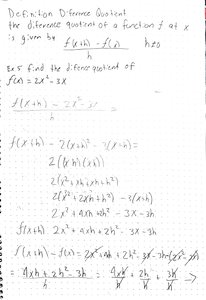 Definition Difference Quotient
the diference quotient of a function f at x
is given by f(x+h) - f(x) / h h≠0
Ex 5 find the diference quotient of
f(x) = 2x² - 3x
f(x+h) - 2x² - 3x =
f(x+h) - 2(x+h)² - 3(x+h) =
2(x+h)(x+h)
2(x²+xh+xh+h²)
2(x²+2xh+h²) - 3(x+h)
2x²+4xh+2h² - 3x-3h
f(x+h) 2x²+4xh+2h² -3x-3h
f(x+h) - f(x) = 2x²+4xh+2h²-3x-3h-(2x²-3x)
= 4xh+2h²-3h / h = 4xh/h + 2h/h + 3h/h →